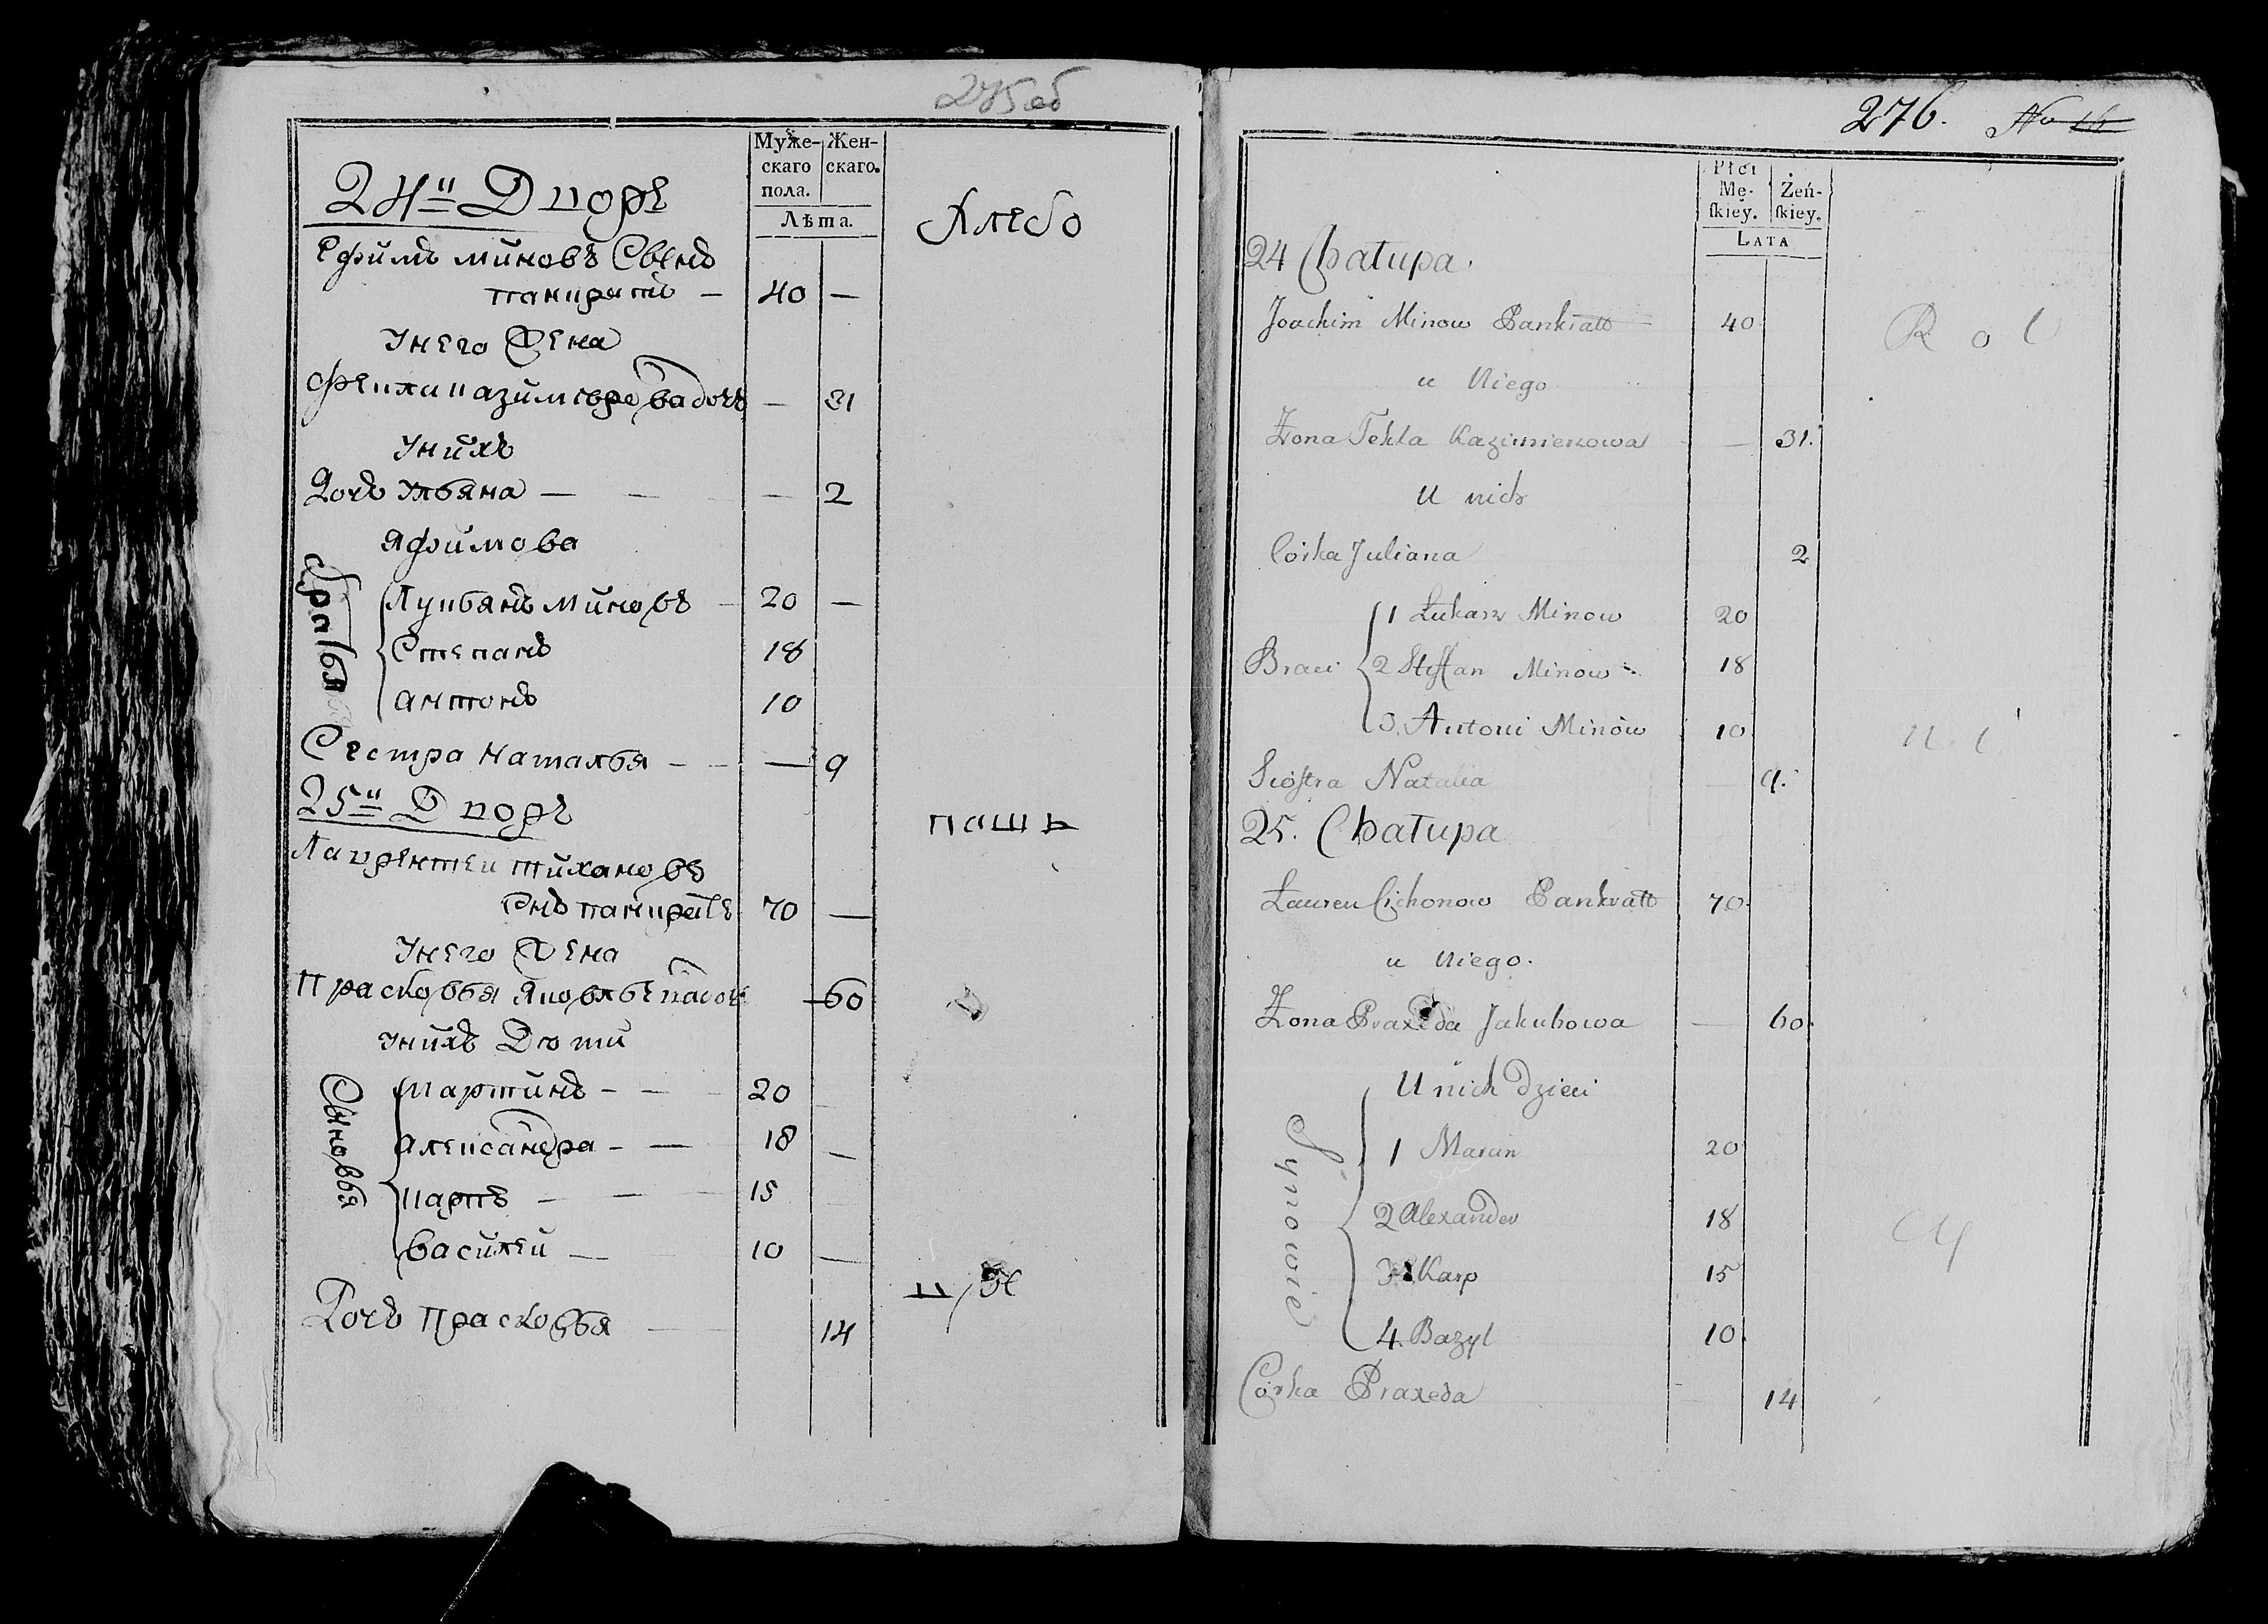 275 об
Муже-
скаго
пола.
Жен-
скаго.
Лѣта.
24й Дворъ
Хлебо
Ефимъ миновъ Сынъ
панкратъ — 40 —
Унего Жена
31
Унихъ
Дочь Ульяна — — — 2
Яфимова
Братья
Лукьянъ миновъ — 20 —
Степанъ 18
антонъ 10
Сестра наталья — — — 9
25й Дворъ
пашъ
Лаврентеи тихановъ
70 —
Унего Жена
Прасковья 60
унихъ Дети
Сыновья
Мартинъ — — 20
александра — — 18 —
карпъ — — 15
василеи — 10 —
Дочь прасковья — 14
276. No 16
Płci
Mę-
ſkiey.
Żeń-
ſkiey.
LATA
24 Chałupa.
Joachim Minow Pankratt 40
R o l
u Niego
Żona Tekla Kazimierzowa — 31.
U nich
Córka Juliana 2
Braci
1 Łukasz Minow 20
2 Steffan Minow 18
3. Antoni Minow 10
n i
Siostra Natalia — 9.
25. Chałupa
Lauren Cichonow Pankratt 70.
u Niego.
Żona Praxeda Jakubowa — 60.
U nich dzieci
Synowie
1 Marcin 20
2 Alexander 18
3 Karp 15
4. Bazyl 10.
Córka Praxeda — 14